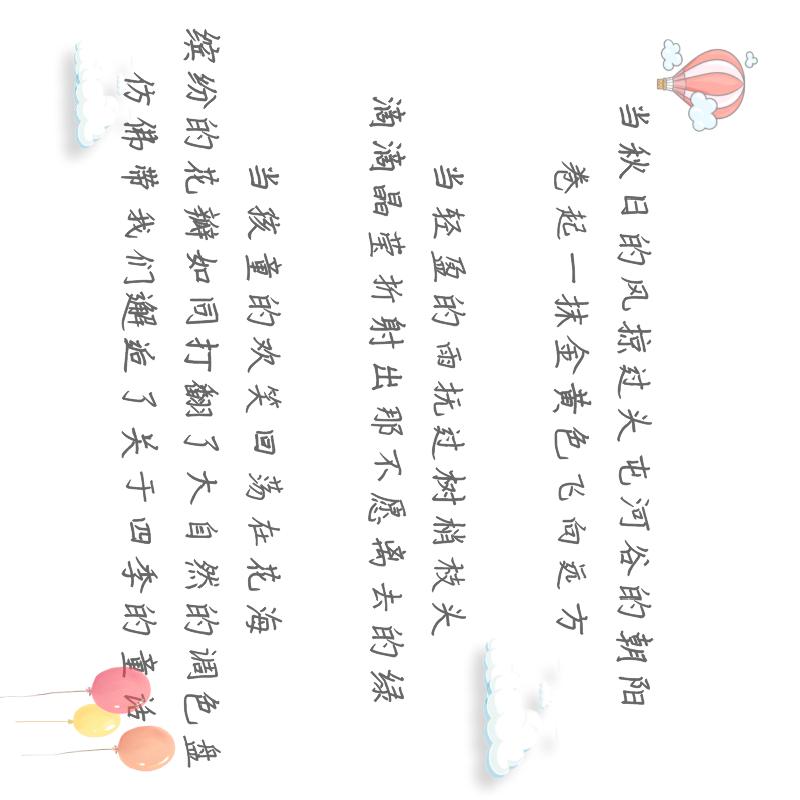 当秋日的风掠过头屯河谷的朝阳
卷起一抹金黄色飞向远方
当轻盈的雨抚过树梢枝头
滴滴晶莹折射出那不愿离去的绿
当孩童的欢笑回荡在花海
缤纷的花瓣如同打翻了大自然的调色盘
仿佛带我们邂逅了关于四季的童话